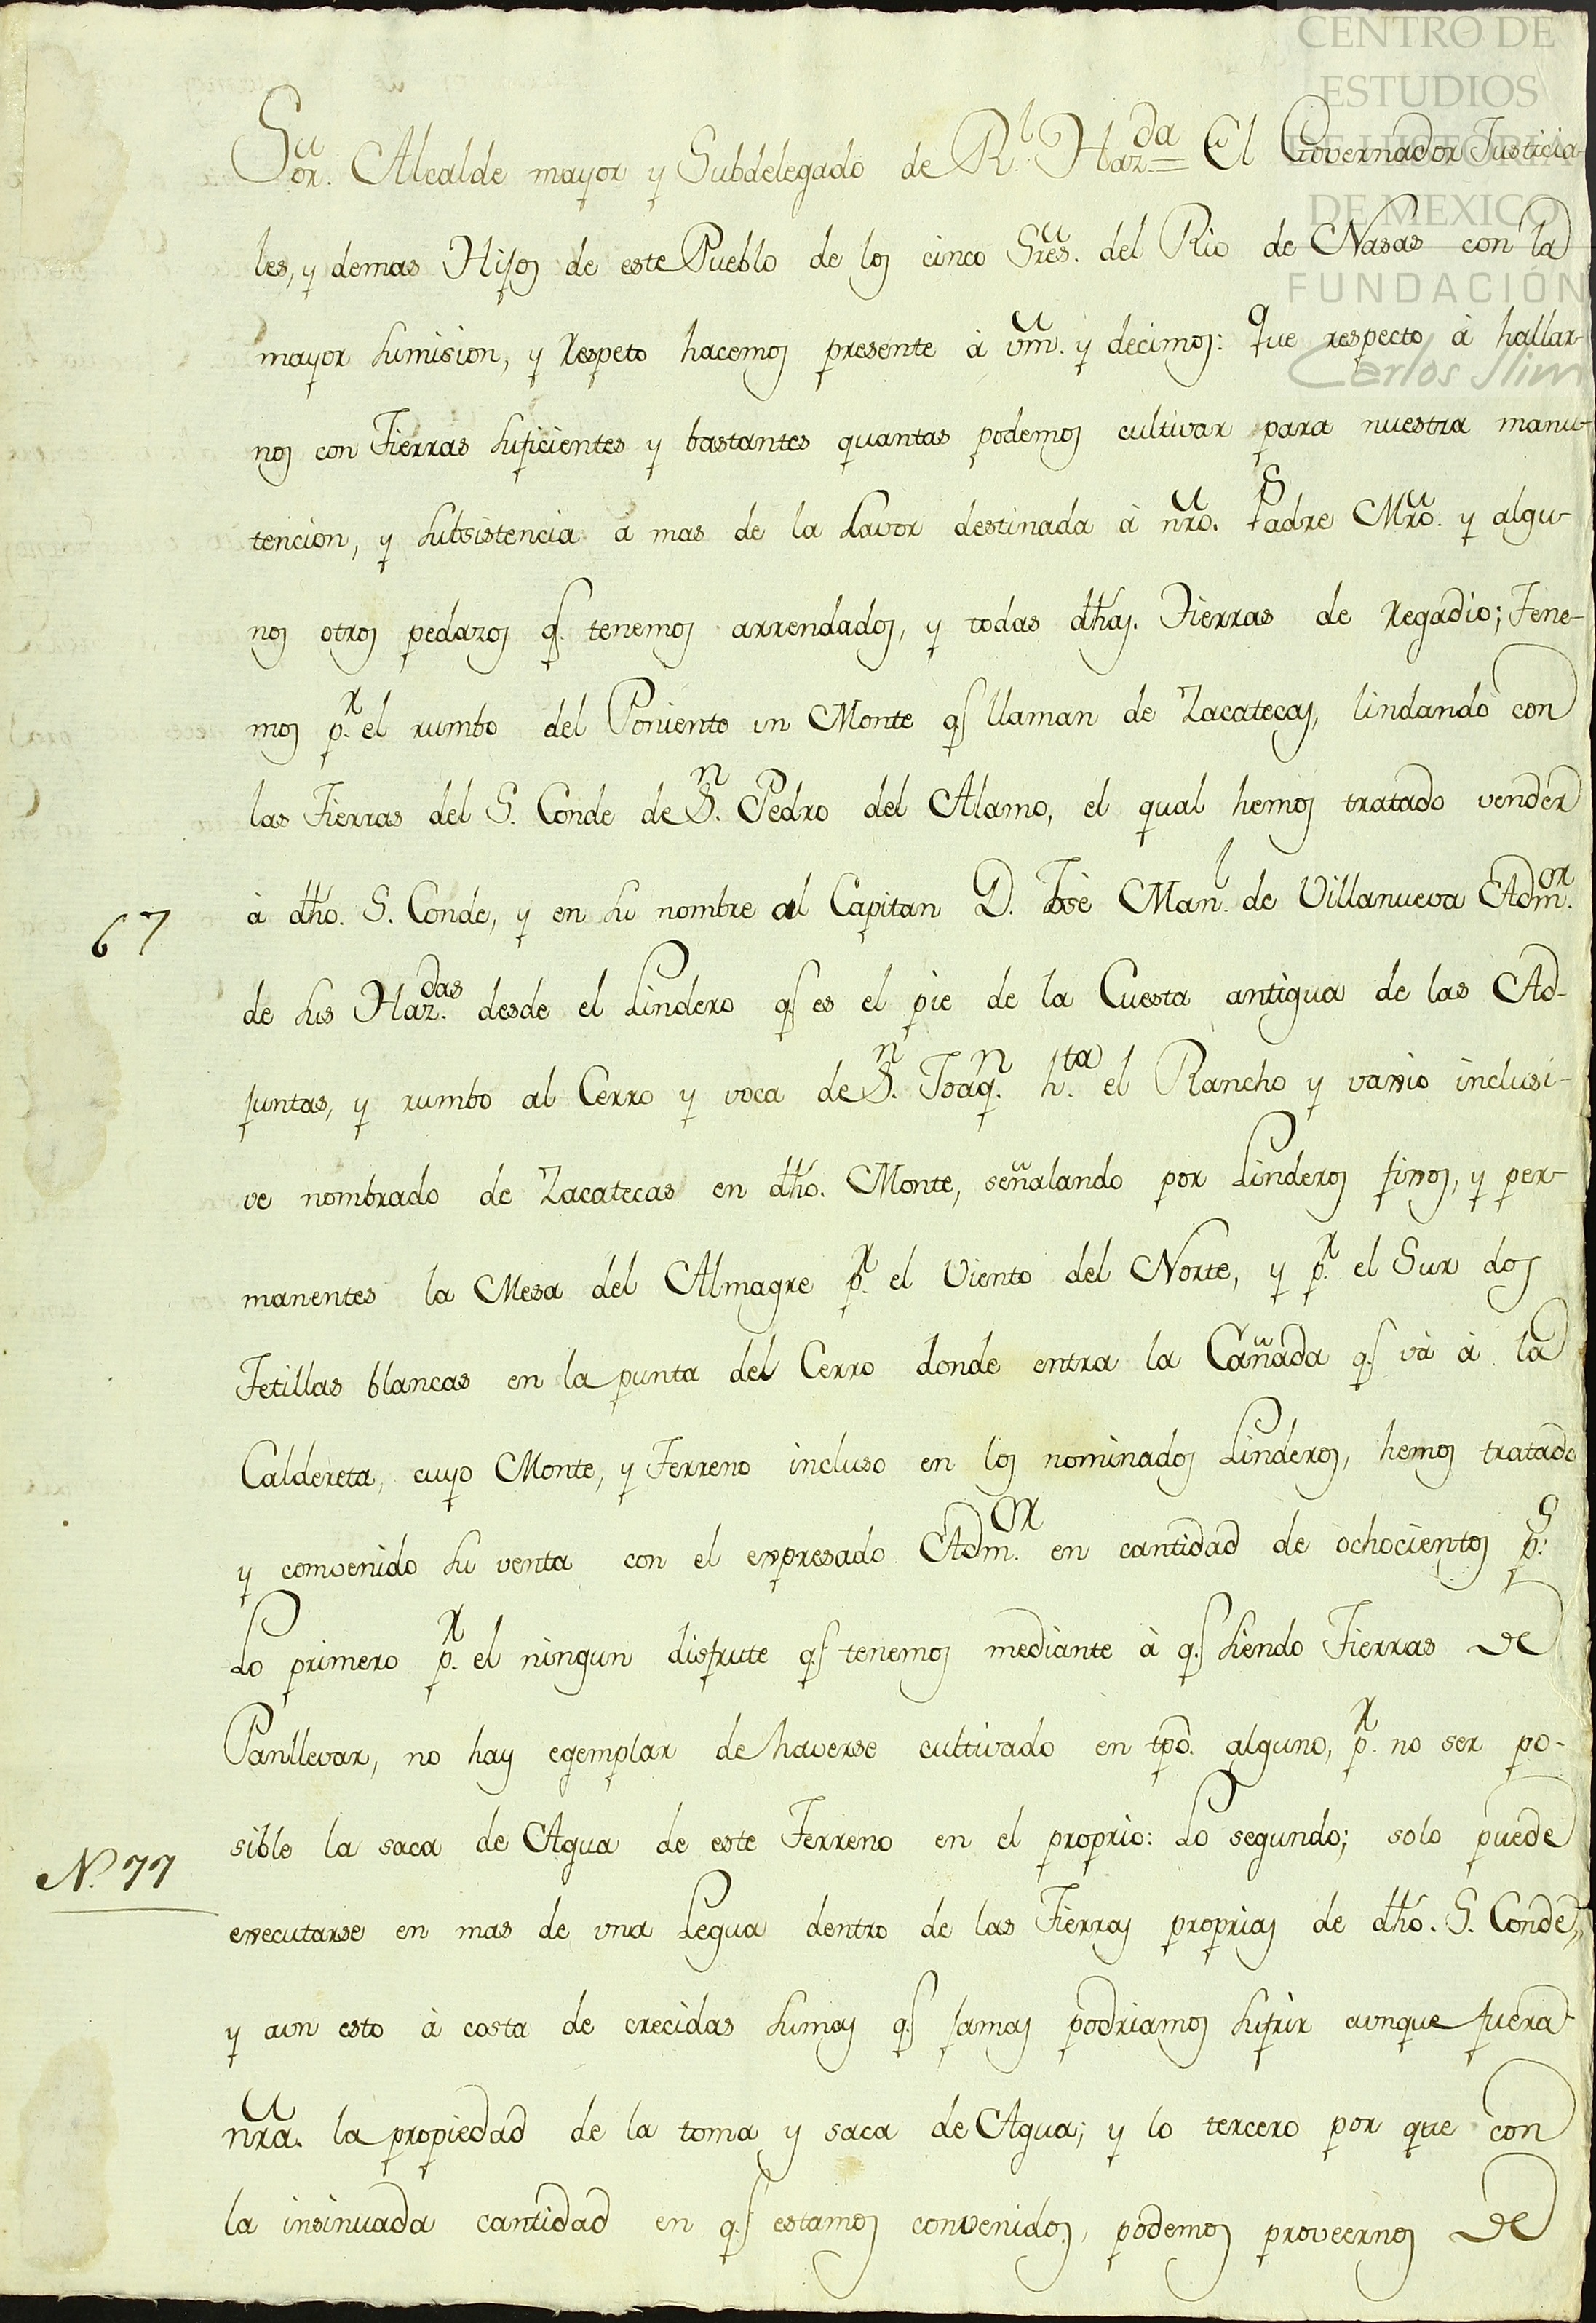 CENTRO DE
ESTUDIOS
DE HISTORIA
DE MEXICO
FUNDACIÓN
Carlos Slim
Sor. Alcalde mayor y Subdelegado de Rl. Hazda. = El Governador Justicia-
les, y demas Hijos de este Pueblo de los cinco Sres. del Rio de Nasas con la
mayor sumision, y respeto hacemos presente à vm. y decimos: que respecto à hallar-
nos con Tierras suficientes y bastantes quantas podemos cultivar para nuestra manu-
tencion, y subsistencia à mas de la Lavor destinada à nro. Padre Mro. y algu-
nos otros pedazos q. tenemos arrendados, y todas dhas. Tierras de regadio; Tene-
mos pr. el rumbo del Poniente un Monte q. llaman de Zacatecas, lindando con
las Tierras del S. Conde de Sn. Pedro del Alamo, el qual hemos tratado vender
à dho. S. Conde, y en su nombre al Capitan D. Josè Manl. de Villanueva Admor.
67
de sus Hazdas. desde el Lindero q. es el pie de la Cuesta antigua de las Ad-
juntas, y rumbo al Cerro y voca de Sn. Joaqn. hta. el Rancho y varrio inclusi-
ve nombrado de Zacatecas en dho. Monte, señalando por Linderos fixos, y per-
manentes la Mesa del Almagre pr. el Viento del Norte, y pr. el Sur dos
Tetillas blancas en la punta del Cerro donde entra la Cañada q. và à la
Caldereta, cuyo Monte, y Terreno incluso en los nominados Linderos, hemos tratado
y comvenido su venta con el expresado Admor. en cantidad de ochocientos ps.
Lo primero pr. el ningun disfrute q. tenemos mediante à q. siendo Tierras de
Panllevar, no hay egemplar de haverse cultivado en tpo. alguno, pr. no ser po-
sible la saca de Agua de este Terreno en el proprio: Lo segundo; solo puede
N. 77
executarse en mas de una Legua dentro de las Tierras proprias de dho. S. Conde,
y aun esto à costa de crecidas sumas q. jamas podriamos sufrir aunque fuera
nra. la propiedad de la toma y saca de Agua; y lo tercero por que con
la insinuada cantidad en q. estamos convenidos, podemos proveernos de